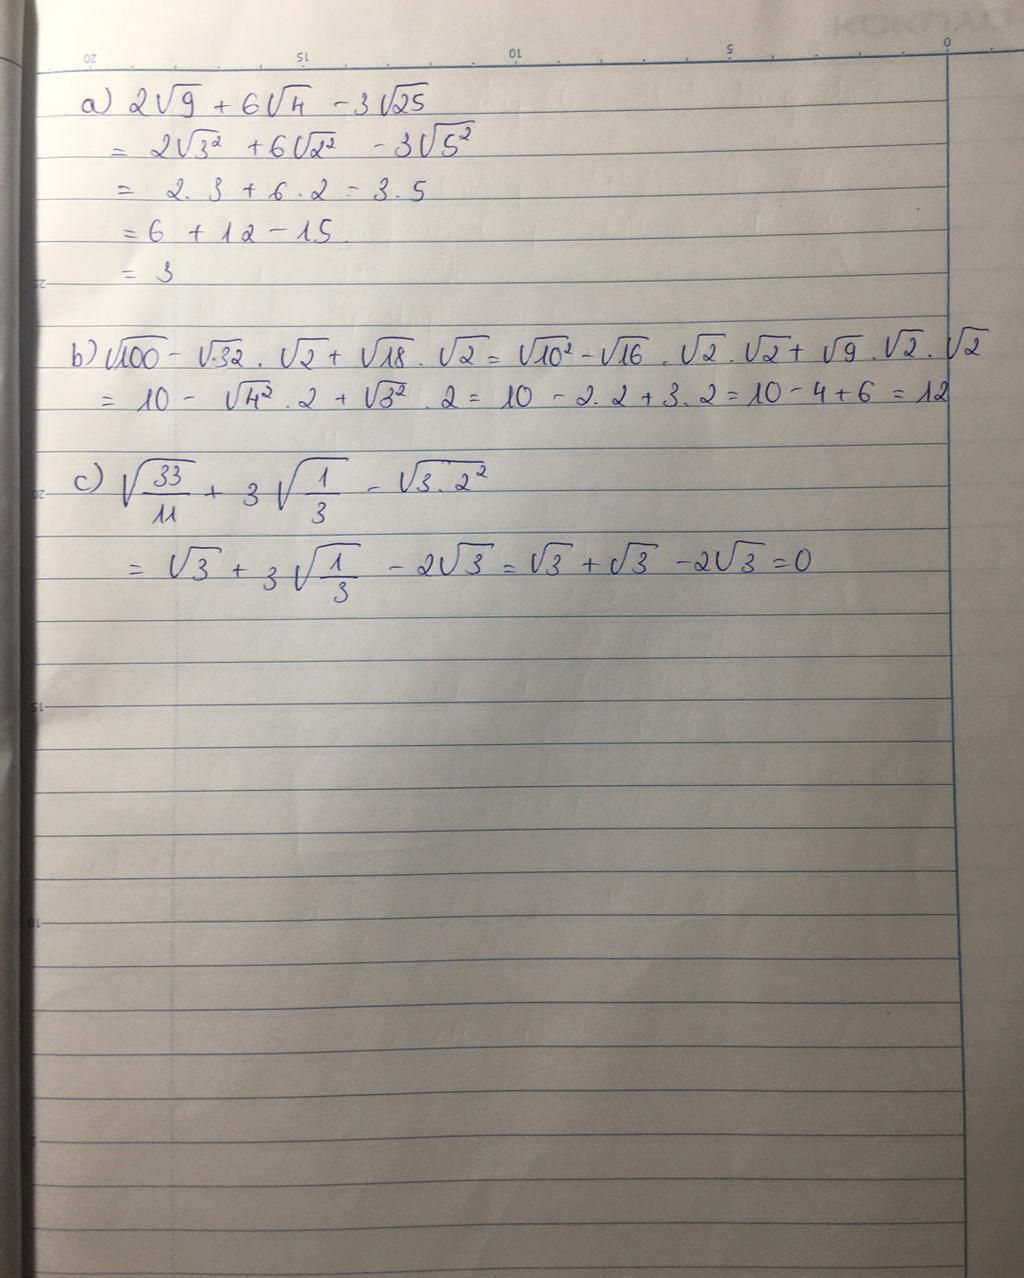 20 15 10 5 0
a) 2√9 + 6√4 - 3√25
= 2√3² + 6√2² - 3√5²
= 2.3 + 6.2 - 3.5
= 6 + 12 - 15
= 3
25
b) √100 - √32 . √2 + √18 . √2 = √10² - √16 . √2 . √2 + √9 . √2 . √2
= 10 - √4² . 2 + √3² . 2 = 10 - 2.2 + 3.2 = 10 - 4 + 6 = 12
c) √(33/11) + 3√(1/3) - √(3.2²)
20
= √3 + 3√(1/3) - 2√3 = √3 + √3 - 2√3 = 0
15
10
5